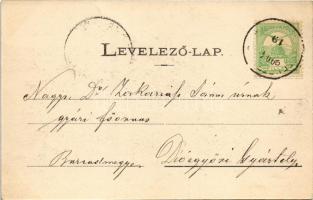 LEVELEZŐ-LAP.
Nagys. Dr Zakariás János úrnak
gyári főorvos
Borsodmegye. Diósgyőri Gyártelep